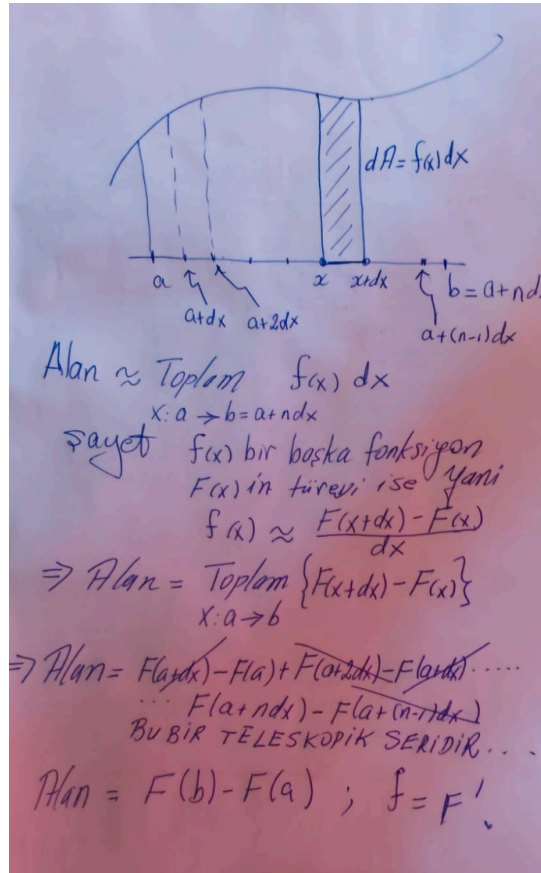 dA = f(x)dx
a
x
x+dx
b = a+nd
a+dx
a+2dx
a+(n-1)dx
Alan ≈ Toplam f(x) dx
x: a → b = a+ndx
Şayet f(x) bir başka fonksiyon
F(x) in türevi ise yani
f(x) ≈ F(x+dx) - F(x)
dx
⇒ Alan = Toplam {F(x+dx) - F(x)}
x: a → b
⇒ Alan = F(a+dx) - F(a) + F(a+2dx) - F(a+dx) .....
... F(a+ndx) - F(a+(n-1)dx)
BU BİR TELESKOPİK SERİDİR....
Alan = F(b) - F(a) ; f = F'.